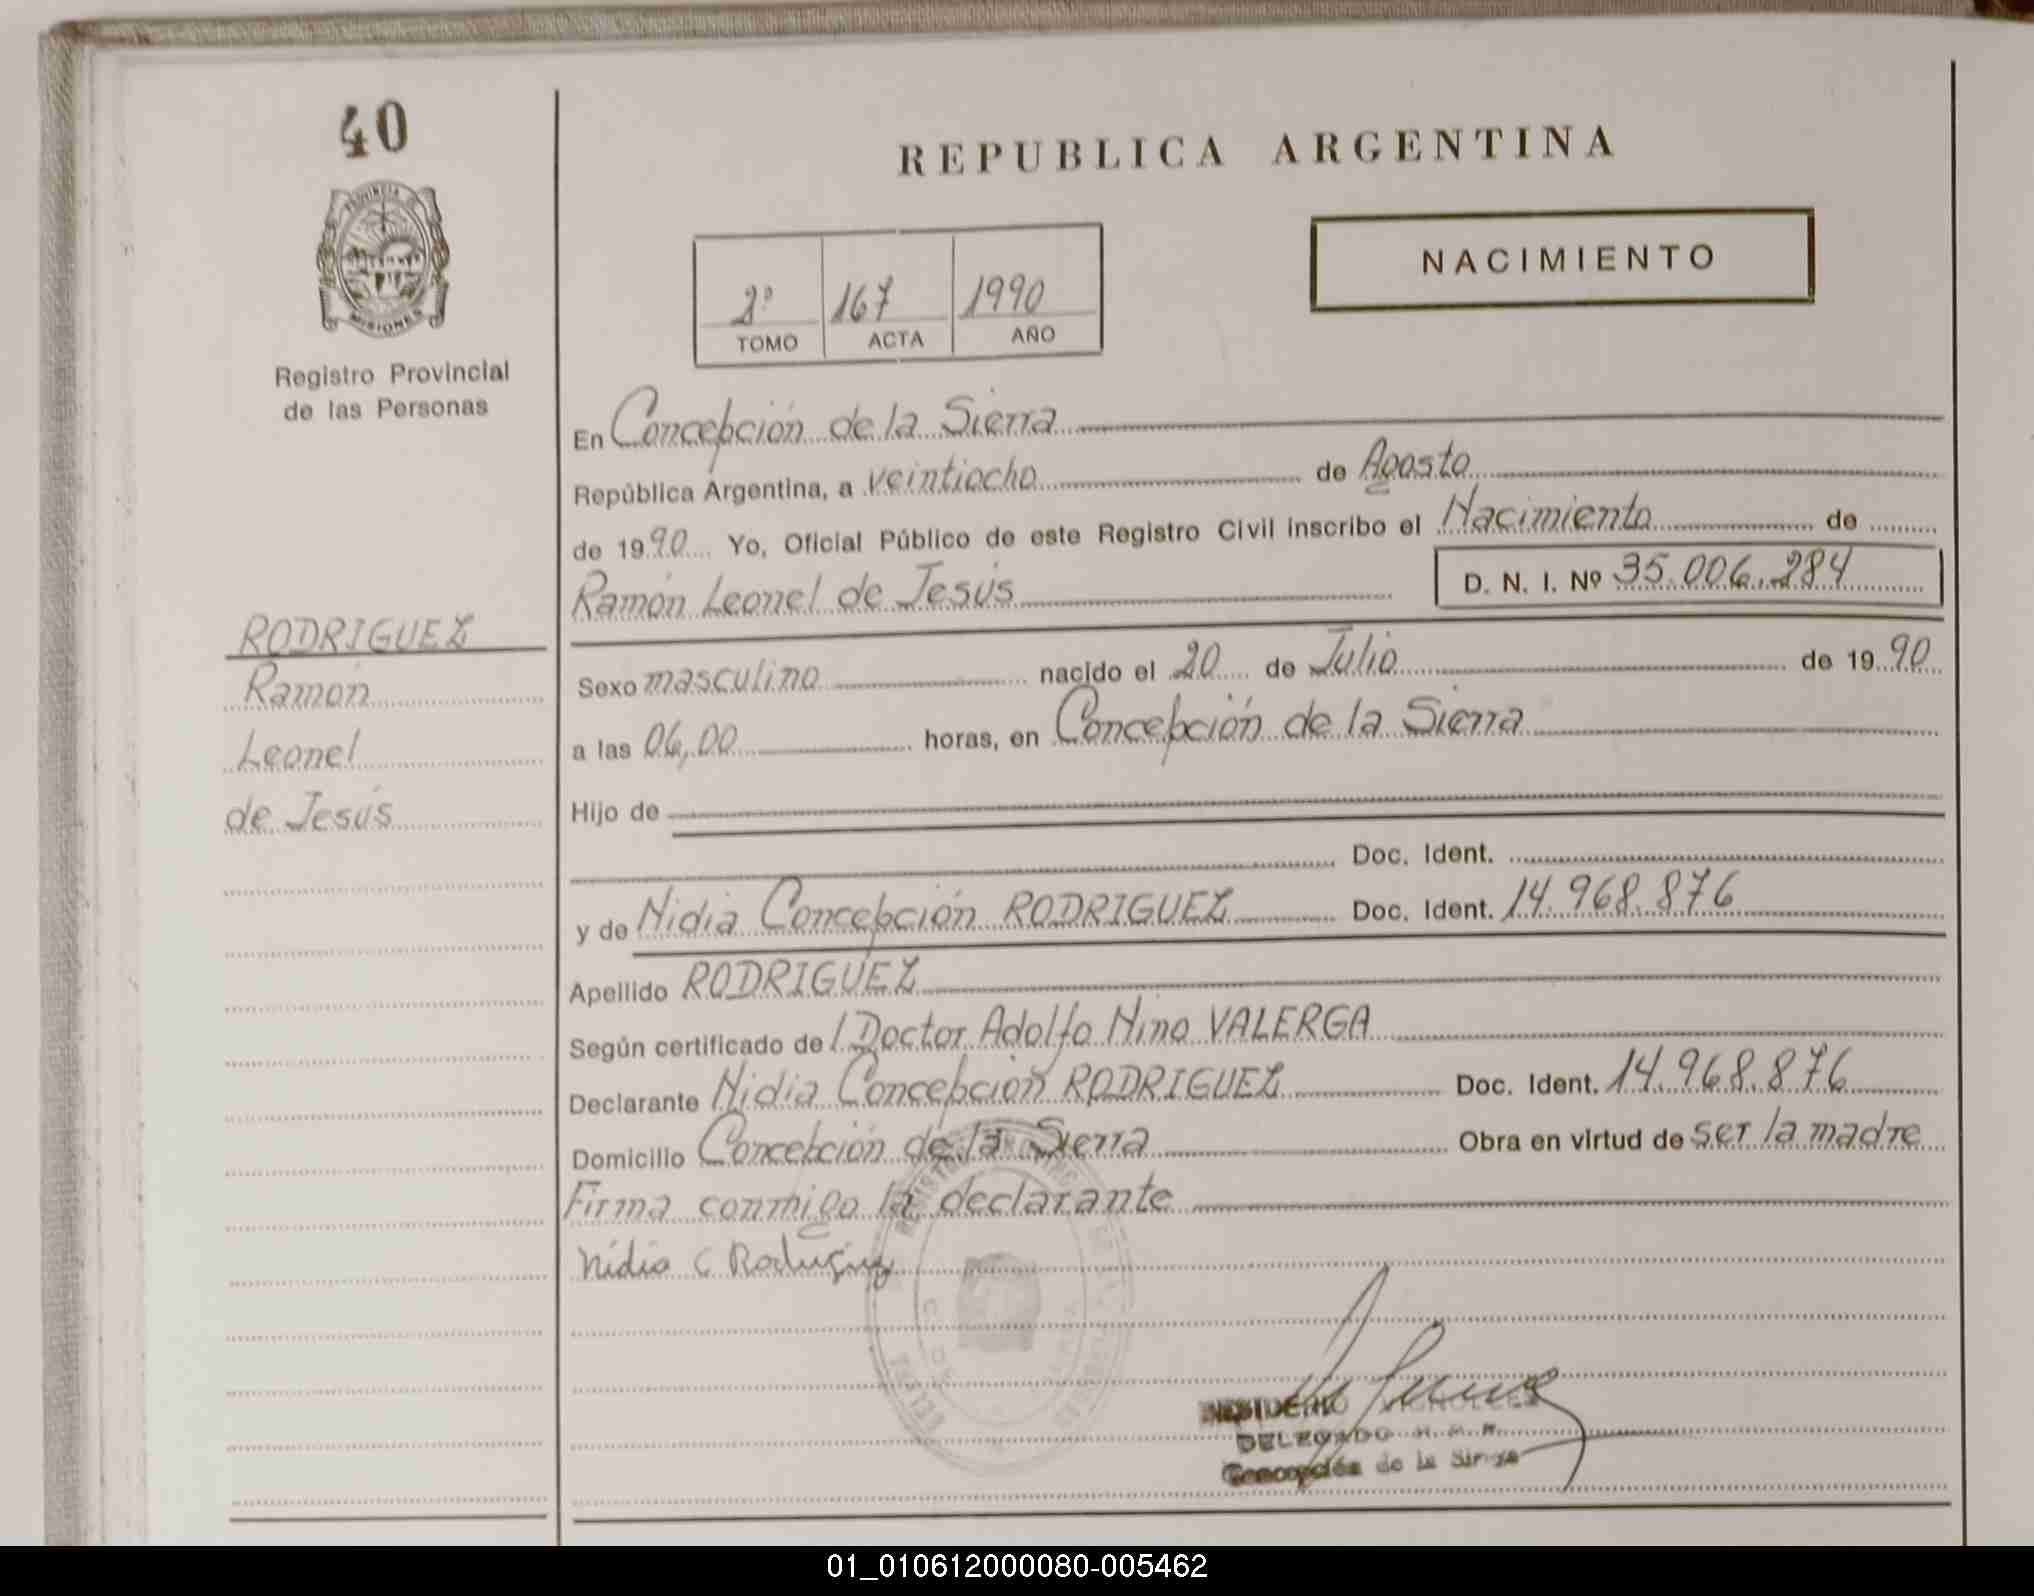 40
PROVINCIA DE
MISIONES
Registro Provincial
de las Personas
RODRIGUEZ
Ramón
Leonel
de Jesús
REPUBLICA ARGENTINA
NACIMIENTO
2º 167 1990
TOMO ACTA AÑO
En Concepción de la Sierra
República Argentina, a veintiocho de Agosto
de 1990 Yo, Oficial Público de este Registro Civil inscribo el Nacimiento de
Ramón Leonel de Jesús D. N. I. Nº 35.006.284
Sexo masculino nacido el 20 de Julio de 1990
a las 06,00 horas, en Concepción de la Sierra
Hijo de
Doc. Ident.
y de Nidia Concepción RODRIGUEZ Doc. Ident. 14.968.876
Apellido RODRIGUEZ
Según certificado de l Doctor Adolfo Nino VALERGA
Declarante Nidia Concepción RODRIGUEZ Doc. Ident. 14.968.876
Domicilio Concepción de la Sierra Obra en virtud de ser la madre
Firma conmigo la declarante
Nidia C Rodriguez
DELEGADO
Concepción de la Sierra
01_010612000080-005462